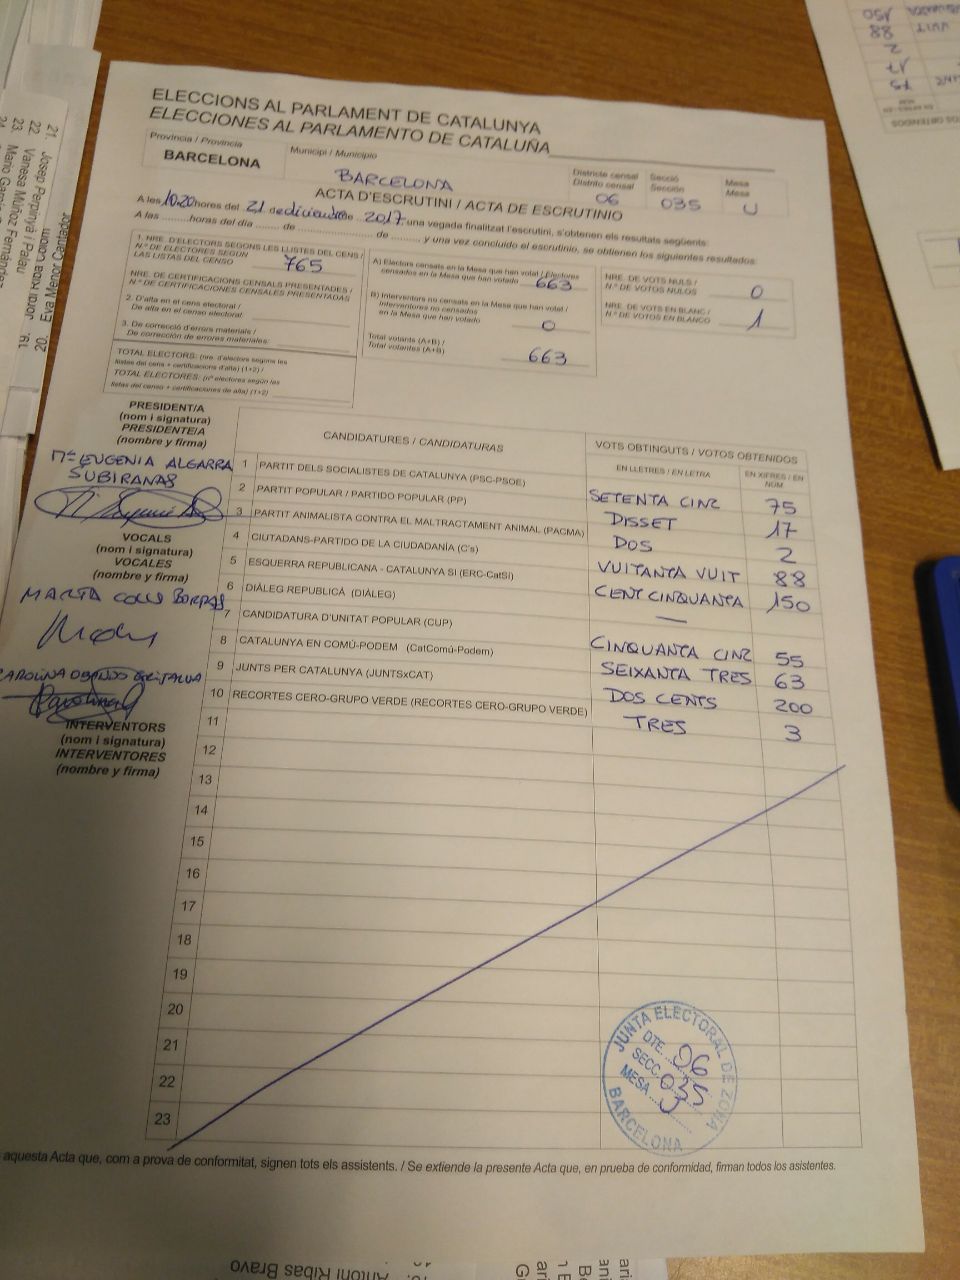 ELECCIONS AL PARLAMENT DE CATALUNYA
ELECCIONES AL PARLAMENTO DE CATALUÑA
Provincia / Provincia
BARCELONA
Municipi / Municipio
BARCELONA
Districte censal
Distrito censal
06
Secció
Sección
035
Mesa
Mesa
U
ACTA D'ESCRUTINI / ACTA DE ESCRUTINIO
A les 10:20 hores del 21 de diciembre de 2017 una vegada finalitzat l'escrutini, s'obtenen els resultats següents:
A las ........horas del día ....... de .................... de ......... y una vez concluido el escrutinio, se obtienen los siguientes resultados:
1. NRE. D'ELECTORS SEGONS LES LLISTES DEL CENS /
N.º DE ELECTORES SEGÚN
LAS LISTAS DEL CENSO
765
NRE. DE CERTIFICACIONS CENSALS PRESENTADES /
N.º CERTIFICACIONES CENSALES PRESENTADAS
2. D'alta en el cens electoral /
De alta en el censo electoral:
3. De correcció d'errors materials /
De corrección de errores materiales:
TOTAL ELECTORS: (nre. d'electors segons les
llistes del cens + certificacions d'alta) (1+2) /
TOTAL ELECTORES: (nº electores según las
listas del censo + certificaciones de alta) (1+2)
A) Electors censats en la Mesa que han votat / Electores
censados en la Mesa que han votado
663
B) Interventors no censats en la Mesa que han votat /
Interventores no censados
en la Mesa que han votado
0
Total votants (A+B) /
Total votantes (A+B)
663
NRE. DE VOTS NULS /
N.º DE VOTOS NULOS
0
NRE. DE VOTS EN BLANC /
N.º DE VOTOS EN BLANCO
1
PRESIDENT/A
(nom i signatura)
PRESIDENTE/A
(nombre y firma)
Mª EUGENIA ALGARRA
SUBIRANAS
VOCALS
(nom i signatura)
VOCALES
(nombre y firma)
MARTA COLLS BORRAS
INTERVENTORS
(nom i signatura)
INTERVENTORES
(nombre y firma)
CANDIDATURES / CANDIDATURAS
VOTS OBTINGUTS / VOTOS OBTENIDOS
EN LLETRES / EN LETRA
EN XIFRES / EN NÚM
1 PARTIT DELS SOCIALISTES DE CATALUNYA (PSC-PSOE) SETENTA CINC 75
2 PARTIT POPULAR / PARTIDO POPULAR (PP) DISSET 17
3 PARTIT ANIMALISTA CONTRA EL MALTRACTAMENT ANIMAL (PACMA) DOS 2
4 CIUTADANS-PARTIDO DE LA CIUDADANÍA (C's) VUITANTA VUIT 88
5 ESQUERRA REPUBLICANA - CATALUNYA SÍ (ERC-CatSí) CENT CINQUANTA 150
6 DIÀLEG REPUBLICÀ (DIÀLEG) —
7 CANDIDATURA D'UNITAT POPULAR (CUP) CINQUANTA CINC 55
8 CATALUNYA EN COMÚ-PODEM (CatComú-Podem) SEIXANTA TRES 63
9 JUNTS PER CATALUNYA (JUNTSxCAT) DOS CENTS 200
10 RECORTES CERO-GRUPO VERDE (RECORTES CERO-GRUPO VERDE) TRES 3
11
12
13
14
15
16
17
18
19
20
21
22
23
JUNTA ELECTORAL DE ZONA
DTE. 06
SECC. 035
MESA U
BARCELONA
aquesta Acta que, com a prova de conformitat, signen tots els assistents. / Se extiende la presente Acta que, en prueba de conformidad, firman todos los asistentes.
21. Josep Perpinyà i Palau
22 Vanesa Muñoz Fernández
20. Eva Menor Cantador
Antoni Ribas Bravo
150
VUIT 88
2
17
75